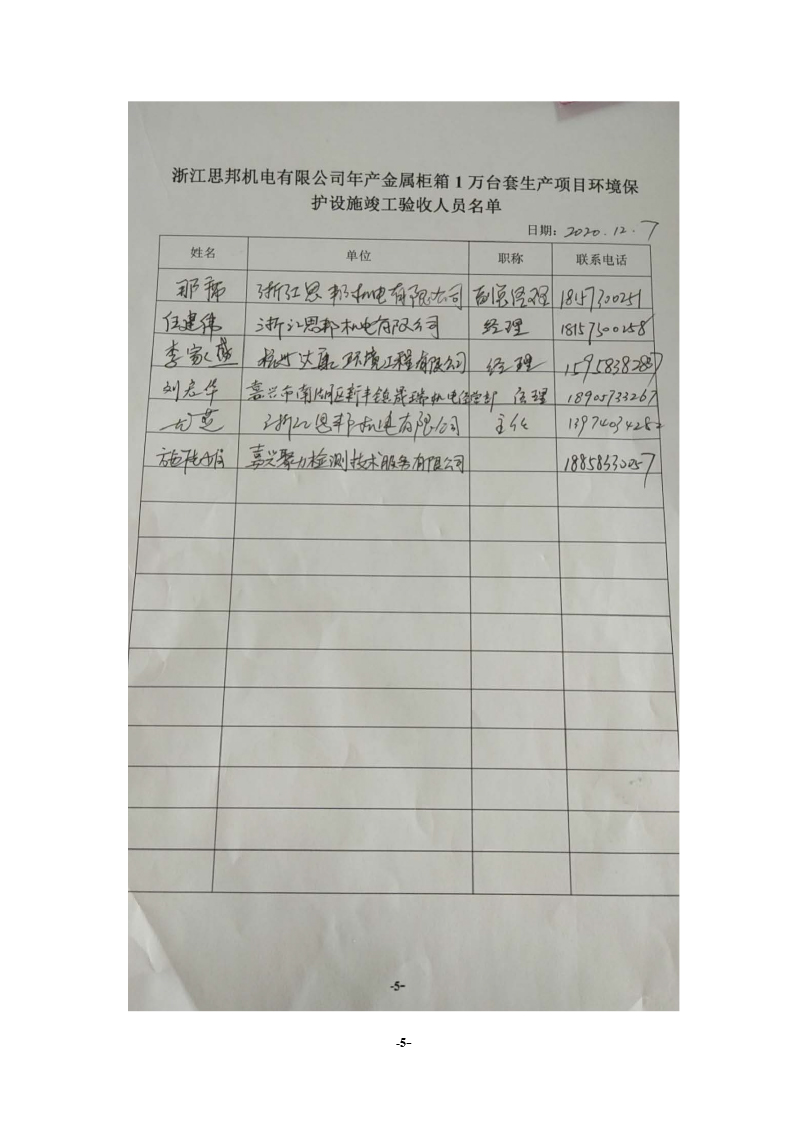 浙江思邦机电有限公司年产金属柜箱 1 万台套生产项目环境保
护设施竣工验收人员名单
日期：2020.12.7
姓名 单位 职称 联系电话
浙江思邦机电有限公司 副总经理 18157300251
任建伟 浙江思邦机电有限公司 经理 18157300258
李家盛 杭州 环境工程有限公司 经理 15958382887
刘志华 嘉兴市南湖区新丰镇晟瑞机电经营部 经理 18905733267
浙江思邦机电有限公司 主任 13974034282
嘉兴聚力检测技术服务有限公司 18858330057
-5-
-5-